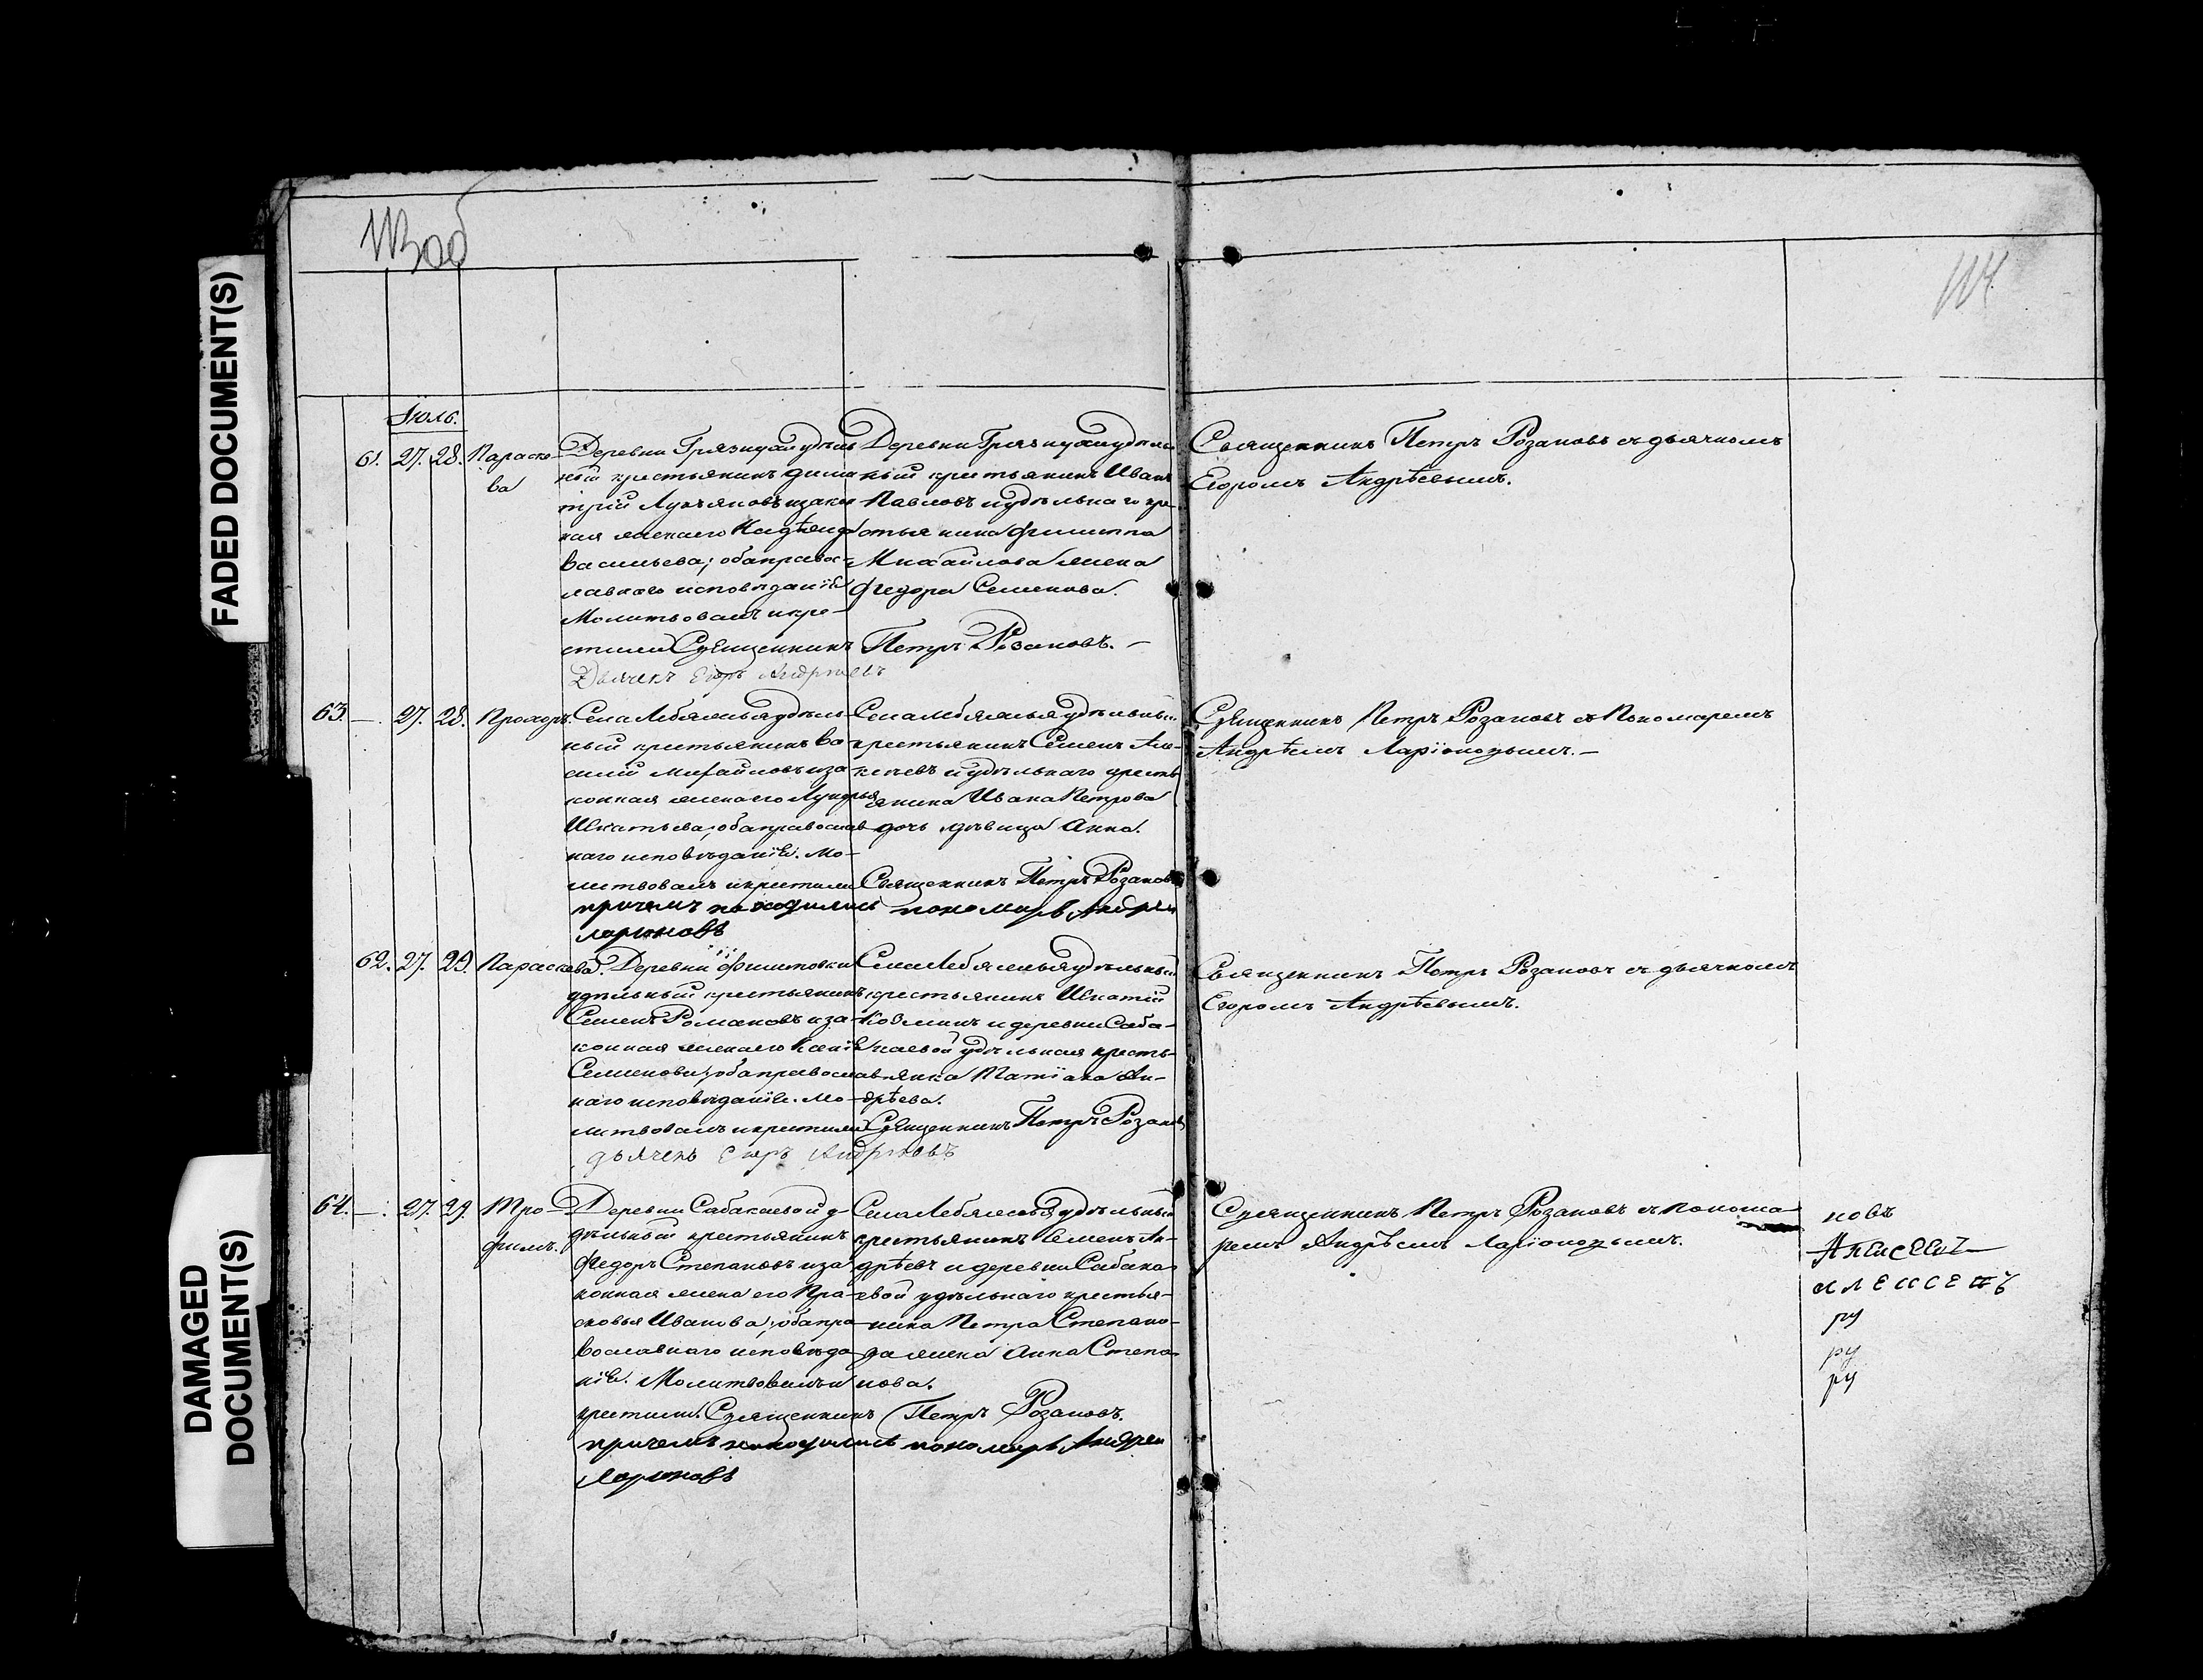 FADED DOCUMENT(S)
DAMAGED
DOCUMENT(S)
113 об
114
Іюль.
61. 27. 28. Параске-
ва
Деревни Грязнухи удѣль
ный крестьянинъ Дими
трій Лукьяновъ и закон
ная жена его Надѣжда
Васильева; оба правос-
лавнаго исповѣданія
Молитвовалъ и кре-
стилъ Священникъ Петръ Розановъ. —
Дьячекъ Егоръ Андрѣевъ
Деревни Грязнухи удѣль
ный крестьянинъ Иванъ
Павловъ и удѣльнаго кре-
стьянина Филиппа
Михайлова жена
Федора Семенова.
Священникъ Петръ Розановъ съ дьячкомъ
Егоромъ Андрѣевымъ.
63. —. 27. 28. Прохоръ.
Села Лебяжья удѣль-
ный крестьянинъ Ва
силій Михайловъ и за
конная жена его Лукерья
Игнатьева; оба православ
наго исповѣданія. Мо-
литвовалъ и крестилъ Священникъ Петръ Розановъ
причемъ находился пономарь Андрей
Ларионовъ
Села Лебяжья удѣльный
крестьянинъ Семенъ Але-
ксѣевъ и удѣльнаго кресть
янина Ивана Петрова
дочь дѣвица Анна.
Священникъ Петръ Розановъ съ Пономаремъ
Андрѣемъ Ларіоновымъ. —
62. 27. 29. Параскева.
Деревни Филиповки
удѣльный крестьянинъ
Семенъ Романовъ и за-
конная жена его Ксенія
Семенова; оба православ
наго исповѣданія. Мо-
литвовалъ и крестилъ Священникъ Петръ Розановъ
дьячекъ Егоръ Андрѣевъ
Села Лебяжья удѣльный
крестьянинъ Игнатій
Козминъ и деревни Саба-
каевой удѣльная кресть-
янка Татіана Ан-
дрѣева.
Священникъ Петръ Розановъ съ дьячкомъ
Егоромъ Андрѣевымъ.
64. —. 27. 29. Тро-
фимъ.
Деревни Сабакаевой у-
дѣльный крестьянинъ
Федоръ Степановъ и за
конная жена его Пра-
сковья Иванова; оба пра
вославнаго исповѣда
нія. Молитвовалъ и
крестилъ Священникъ Петръ Розановъ.
причемъ находился пономарь Андрей
Ларионовъ
Села Лебяжья удѣльный
крестьянинъ Семенъ Ан-
дрѣевъ и деревни Сабака
евой удѣльнаго крестья-
нина Петра Степано-
ва жена Анна Степа
нова.
Священникъ Петръ Розановъ съ понома-
ремъ Андрѣемъ Ларіоновымъ.
новъ
ру
ру
ру